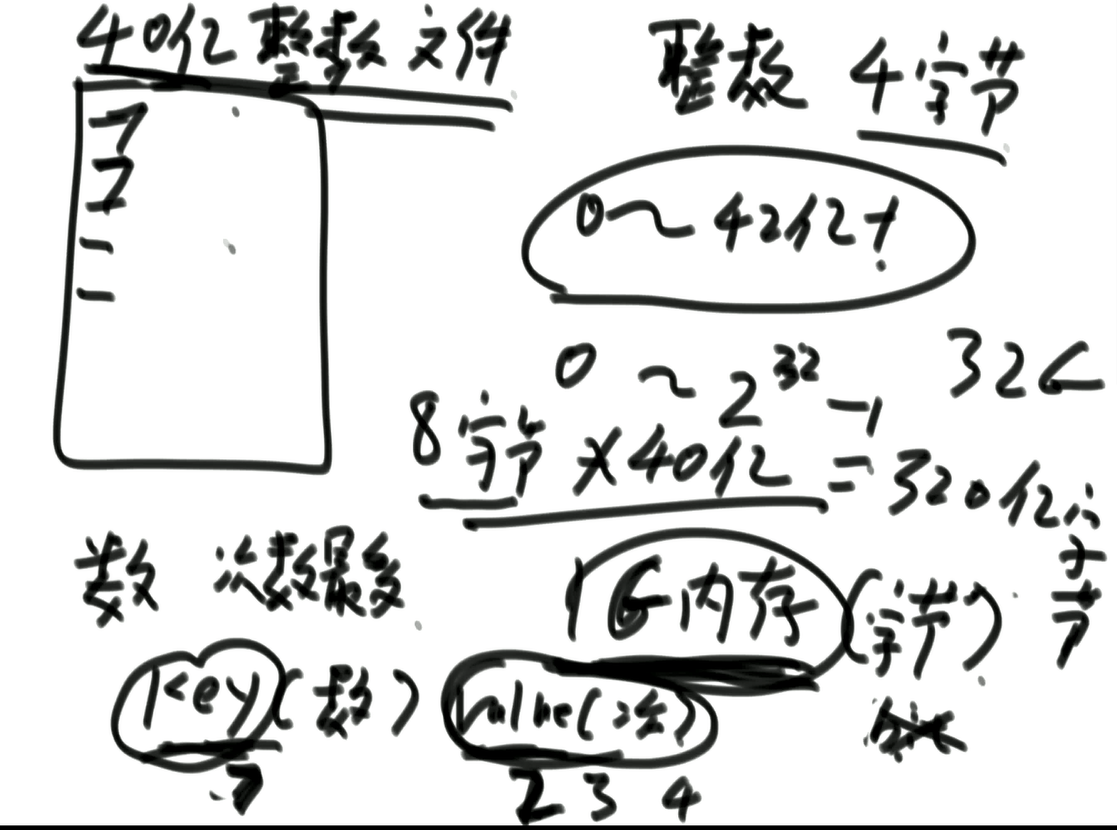 40亿 整数 文件
整数 4字节
7
7
0~42亿+
0 ~ 2³²-1
32G
8字节 × 40亿 = 320亿字节
数 次数最多
1G内存 (字节)
Key(数) Value(次)
7 2 3 4